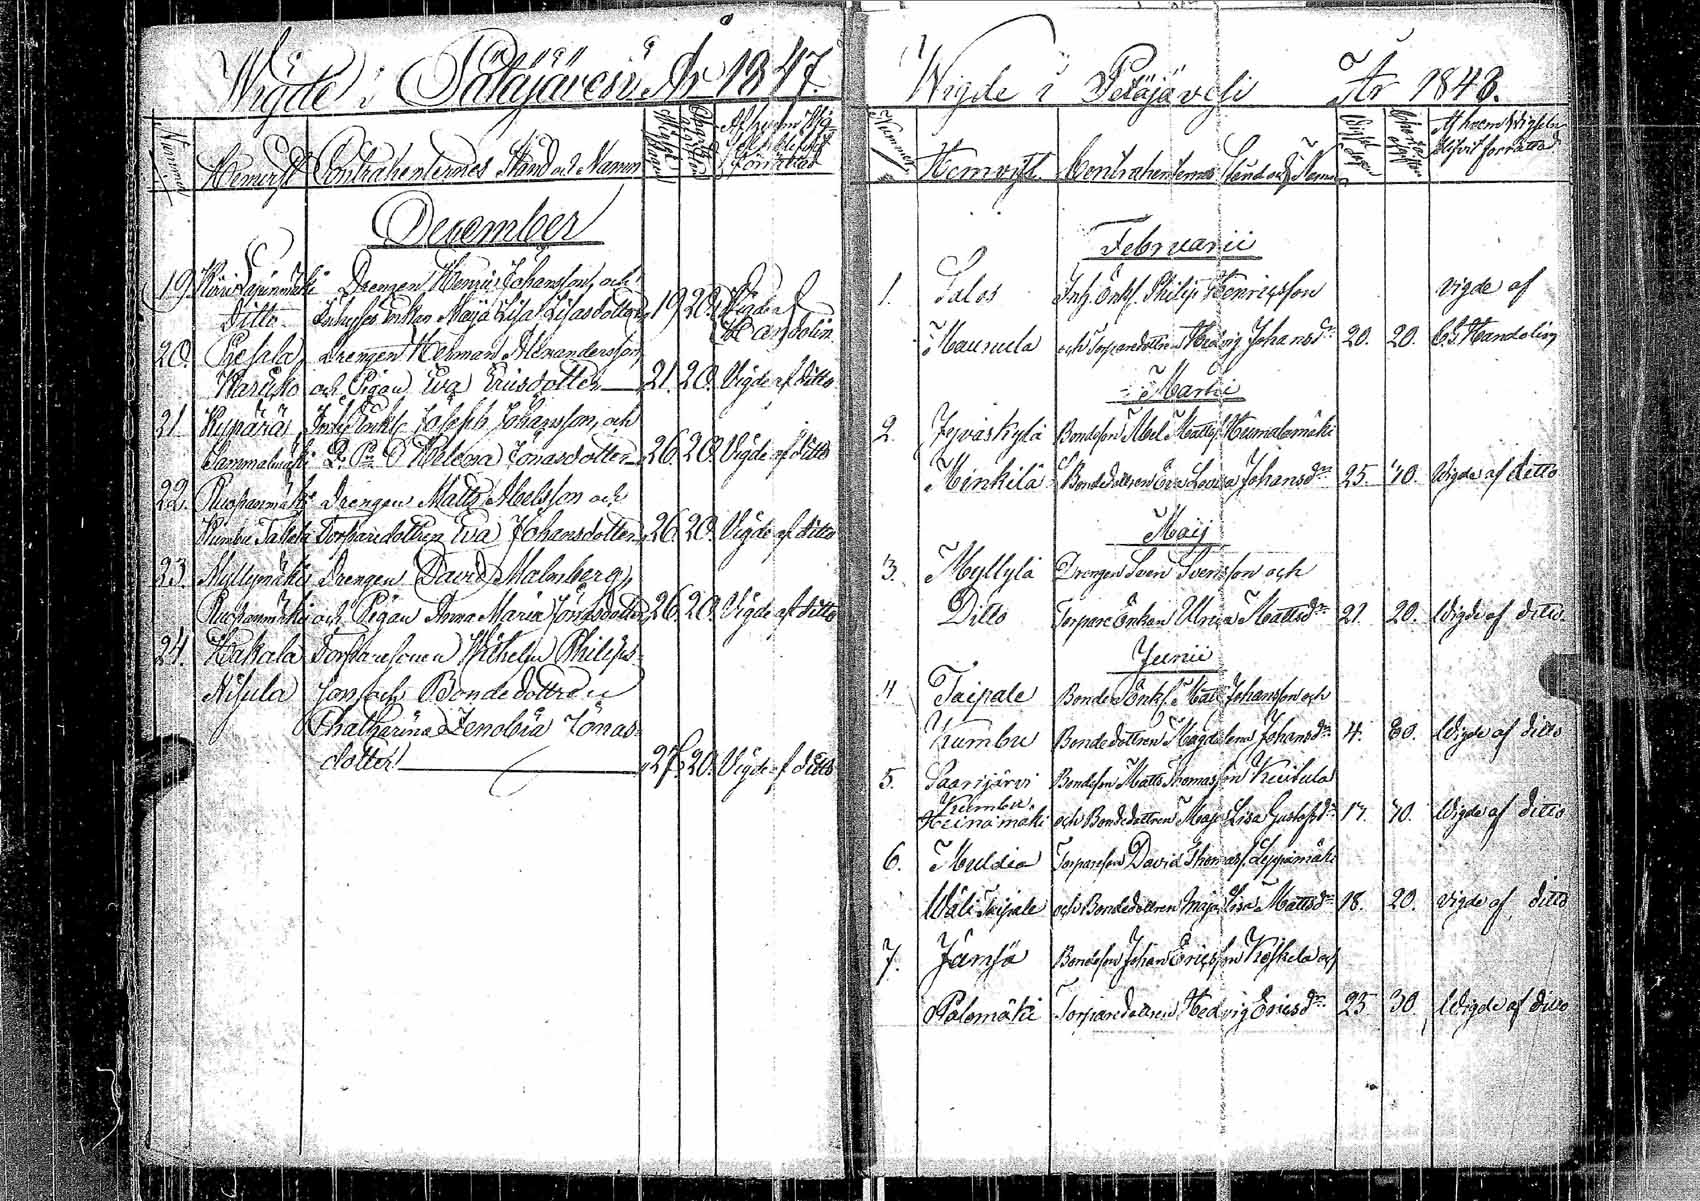 Wigde i Pätäjävesi År 1847.
Nummer
Hemvist Contrahenternes Stånd och Namn
December
19. Drengen Henric Johansson, och
Ditto Enkan Maja Lisa Lisasdotter 19 20. Vigde af Handolin
20. Drengen Herman Alexandersson
och Pigan Eva Ericsdotter 21. 20. Vigde af ditto
21 Kypärä Enkl. Joseph Johansson, och
Sammalmäki D. Helena Jonasdotter 26. 20. Vigde af ditto
22. Ruophanmäki Drengen Matts Abelsson och
Kumbu Torparedottren Eva Johansdotter 26. 20. Vigde af ditto
23. Myllymäki Drengen David Malmberg,
Ruophanmäki och Pigan Anna Maria Jonasdotter 26. 20. Vigde af ditto
24. Hakala Torparesonen Wilhelm Philips-
Nisula son och Bondedottren
Chatharina Zenobia Jonas-
dotter 27. 20. Vigde af ditto
Wigde i Petäjävesi År 1848.
Nummer
Hemvist. Contrahenternas Stånd och Namn
Af hvem Vigseln blifvit förrättad
Februarii
1. Salos Inh. Enkl. Philip Henricsson vigde af
och Torparedottren Hedvig Johansdr. 20. 20. C. G. Handolin
Martii
2. Jyväskylä Bondeson Abel Mattss. Humalamäki
Minkilä Bondedottren Eva Lovisa Johansdr. 25. 40. Vigde af ditto
Maij
3. Myllylä Drengen Sven Svensson och
Ditto Torpare Enkan Ulrica Mattsdr. 21. 20. Vigde af ditto.
Junii
4. Taipale Bonden Enkl. Matts Johansson och
Kumbu Bondedottren Magdalena Johansdr. 4. 80. Vigde af ditto
5. Saarijärvi Bondeson Matts Thomasson Kuitula
Kumbu
Heinämäki och Bondedottren Maja Lisa Gustafsdr. 17. 40. Vigde af ditto
6. Muldia Torpareson David Thomass. Leppämäki
Wäli Taipale och Bondedottren Maja Lisa Mattsdr. 18. 20. Vigde af ditto
7. Jämsä Bondeson Johan Ericsson Koskela och
Palomäki Torparedottren Hedvig Ericsdr. 25 30. Vigde af ditto